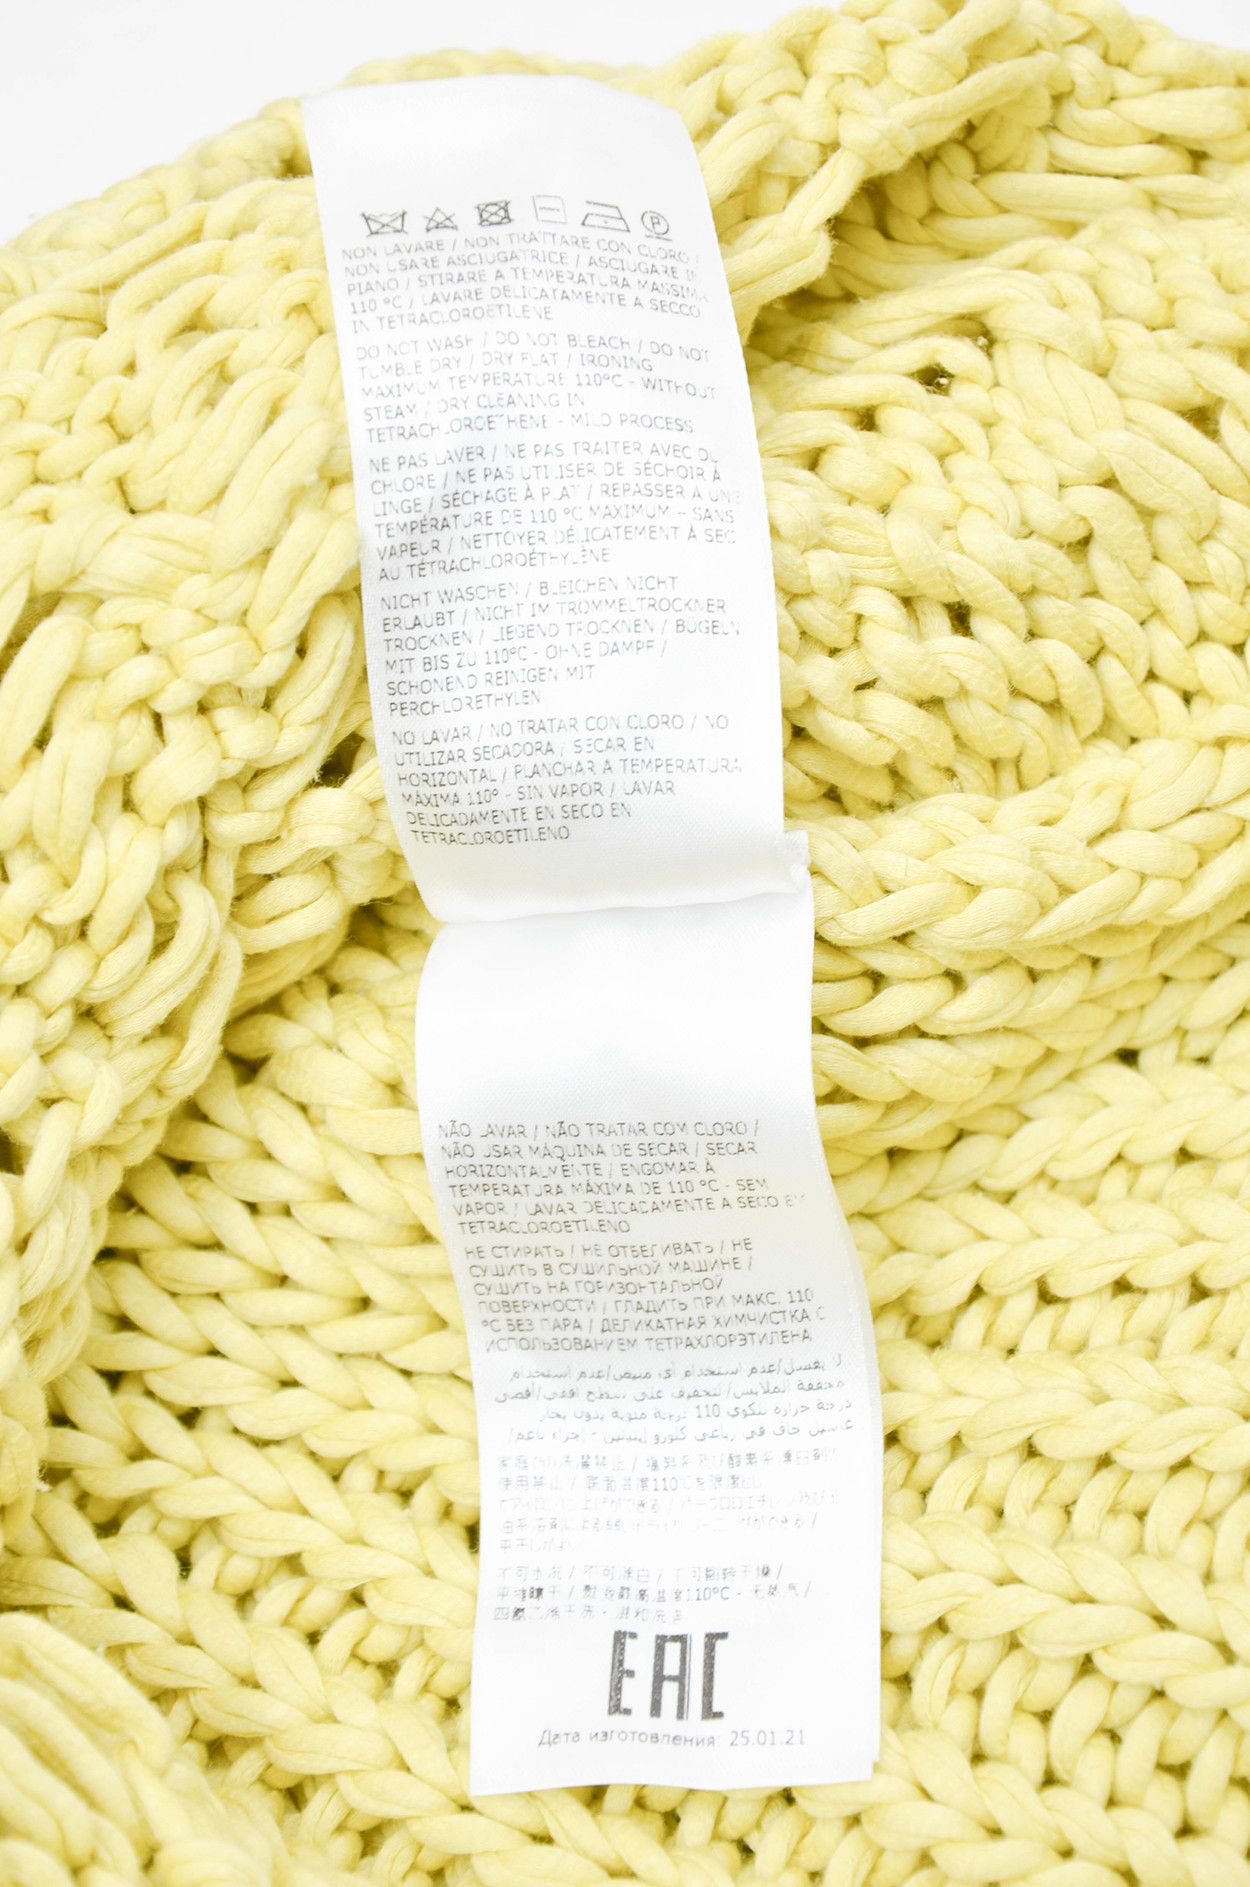 NON LAVARE / NON TRATTARE CON CLORO /
NON USARE ASCIUGATRICE / ASCIUGARE IN
PIANO / STIRARE A TEMPERATURA MASSIMA
110 °C / LAVARE DELICATAMENTE A SECCO
IN TETRACLOROETILENE
DO NOT WASH / DO NOT BLEACH / DO NOT
TUMBLE DRY / DRY FLAT / IRONING
MAXIMUM TEMPERATURE 110°C - WITHOUT
STEAM / DRY CLEANING IN
TETRACHLOROETHENE - MILD PROCESS
NE PAS LAVER / NE PAS TRAITER AVEC DU
CHLORE / NE PAS UTILISER DE SÉCHOIR À
LINGE / SÉCHAGE À PLAT / REPASSER À UNE
TEMPÉRATURE DE 110 °C MAXIMUM – SANS
VAPEUR / NETTOYER DÉLICATEMENT À SEC
AU TÉTRACHLOROÉTHYLÈNE
NICHT WASCHEN / BLEICHEN NICHT
ERLAUBT / NICHT IM TROMMELTROCKNER
TROCKNEN / LIEGEND TROCKNEN / BÜGELN
MIT BIS ZU 110°C - OHNE DAMPF /
SCHONEND REINIGEN MIT
PERCHLORETHYLEN
NO LAVAR / NO TRATAR CON CLORO / NO
UTILIZAR SECADORA / SECAR EN
HORIZONTAL / PLANCHAR A TEMPERATURA
MÁXIMA 110° - SIN VAPOR / LAVAR
DELICADAMENTE EN SECO EN
TETRACLOROETILENO
NÃO LAVAR / NÃO TRATAR COM CLORO /
NÃO USAR MÁQUINA DE SECAR / SECAR
HORIZONTALMENTE / ENGOMAR À
TEMPERATURA MÁXIMA DE 110 °C - SEM
VAPOR / LAVAR DELICADAMENTE A SECO EM
TETRACLOROETILENO
НЕ СТИРАТЬ / НЕ ОТБЕЛИВАТЬ / НЕ
СУШИТЬ В СУШИЛЬНОЙ МАШИНЕ /
СУШИТЬ НА ГОРИЗОНТАЛЬНОЙ
ПОВЕРХНОСТИ / ГЛАДИТЬ ПРИ МАКС. 110
°C БЕЗ ПАРА / ДЕЛИКАТНАЯ ХИМЧИСТКА С
ИСПОЛЬЗОВАНИЕМ ТЕТРАХЛОРЭТИЛЕНА
لا يغسل/عدم استخدام أي مبيض/عدم استخدام
مجففة الملابس/التجفيف على سطح افقي/أقصى
درجة حرارة للكوي 110 درجة مئوية بدون بخار
使用禁止 / 底面温度110℃を限度とし
平干し
不可水洗 / 不可漂白 / 不可翻转干燥 /
110°C -
EAC
Дата изготовления: 25.01.21